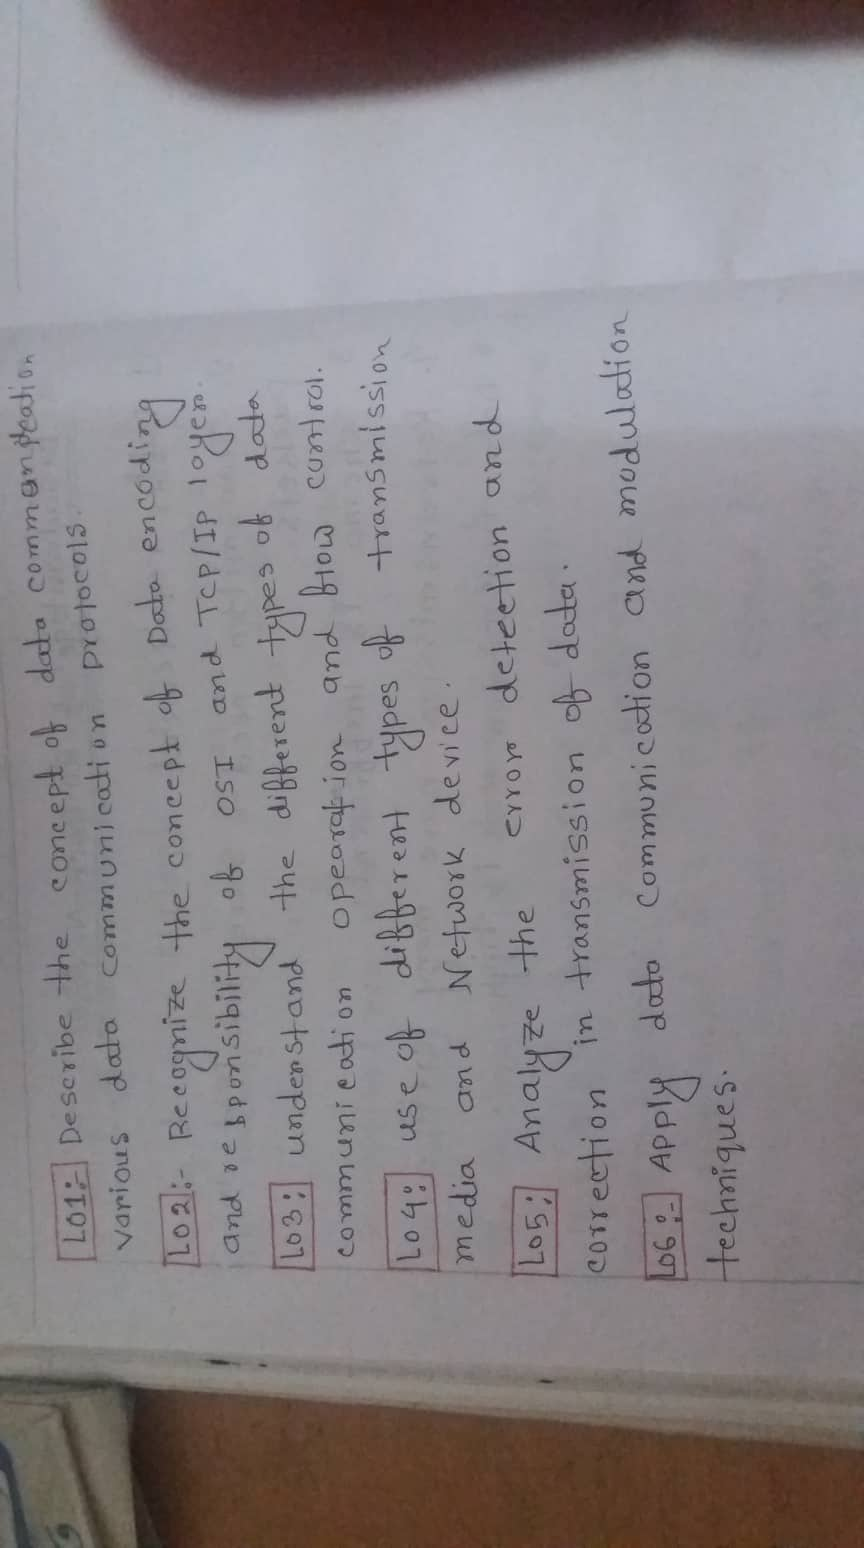 LO1:- Describe the concept of data
various data communication protocols.
LO2:- Recognize the concept of Data encoding
and responsibility of OSI and TCP/IP layer.
LO3: understand the different types of data
communication opearation and flow control.
LO4: use of different types of transmission
media and Network device.
LO5: Analyze the error detection and
correction in transmission of data.
LO6:- Apply data communication and modulation
techniques.